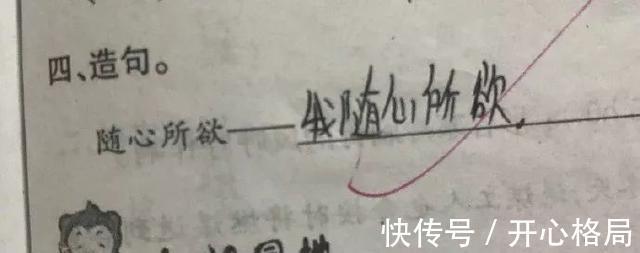 四、造句。
随心所欲——我随心所欲.
快传号 / 开心格局